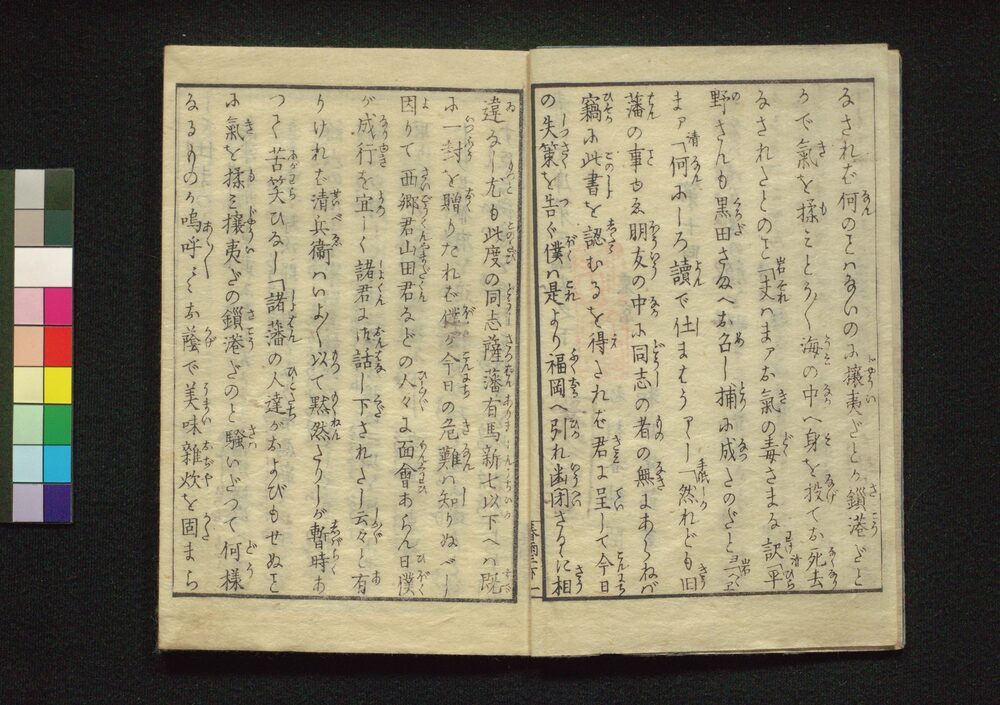 なされば何のことはないのに攘夷だとか鎖港だと
かで氣を揉てとう〳〵海の中へ身を投てお死去
なされたとのこと「夫はまアお氣の毒さまな訳「平
野さんも黒田さまへお召し捕に成たのだと
まア「何にしろ讀で仕まはうアー「然れども旧
藩の事ゆゑ朋友の中に同志の者の無にあらねば
竊に此書を認むるを得されば君に呈して今日
の失策を告ぐ僕は是より福岡へ引れ歯閉さるに相
違なし尤も此度の同志薩藩有馬新七以下へは既
に一封を贈りたれば僕が今日の危難は知りぬべし
因りて西郷君山田君などの人々に面會あらん日僕
が成行を宜しく諸君に御話し下されたし云々と有
りければ清兵衛はいよ〳〵以て黙然たりしが暫時あ
つて苦笑ひなし「諸藩の人達がおよびもせぬこと
に氣を揉み攘夷だの鎖港だのと騒いだつて何様
なるものか嗚呼こてお蔭で美味雜炊を固まら